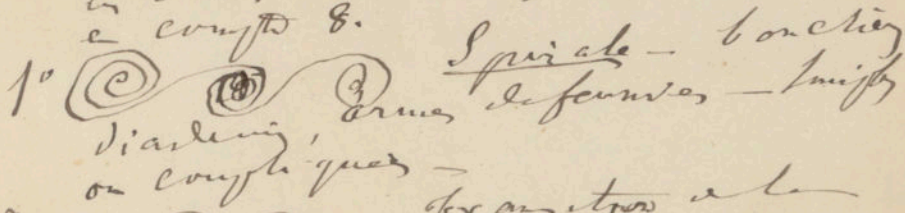 e compte 8.
1° Spirale — bouclier
diadème, armes défensives — simples
ou compliquées —